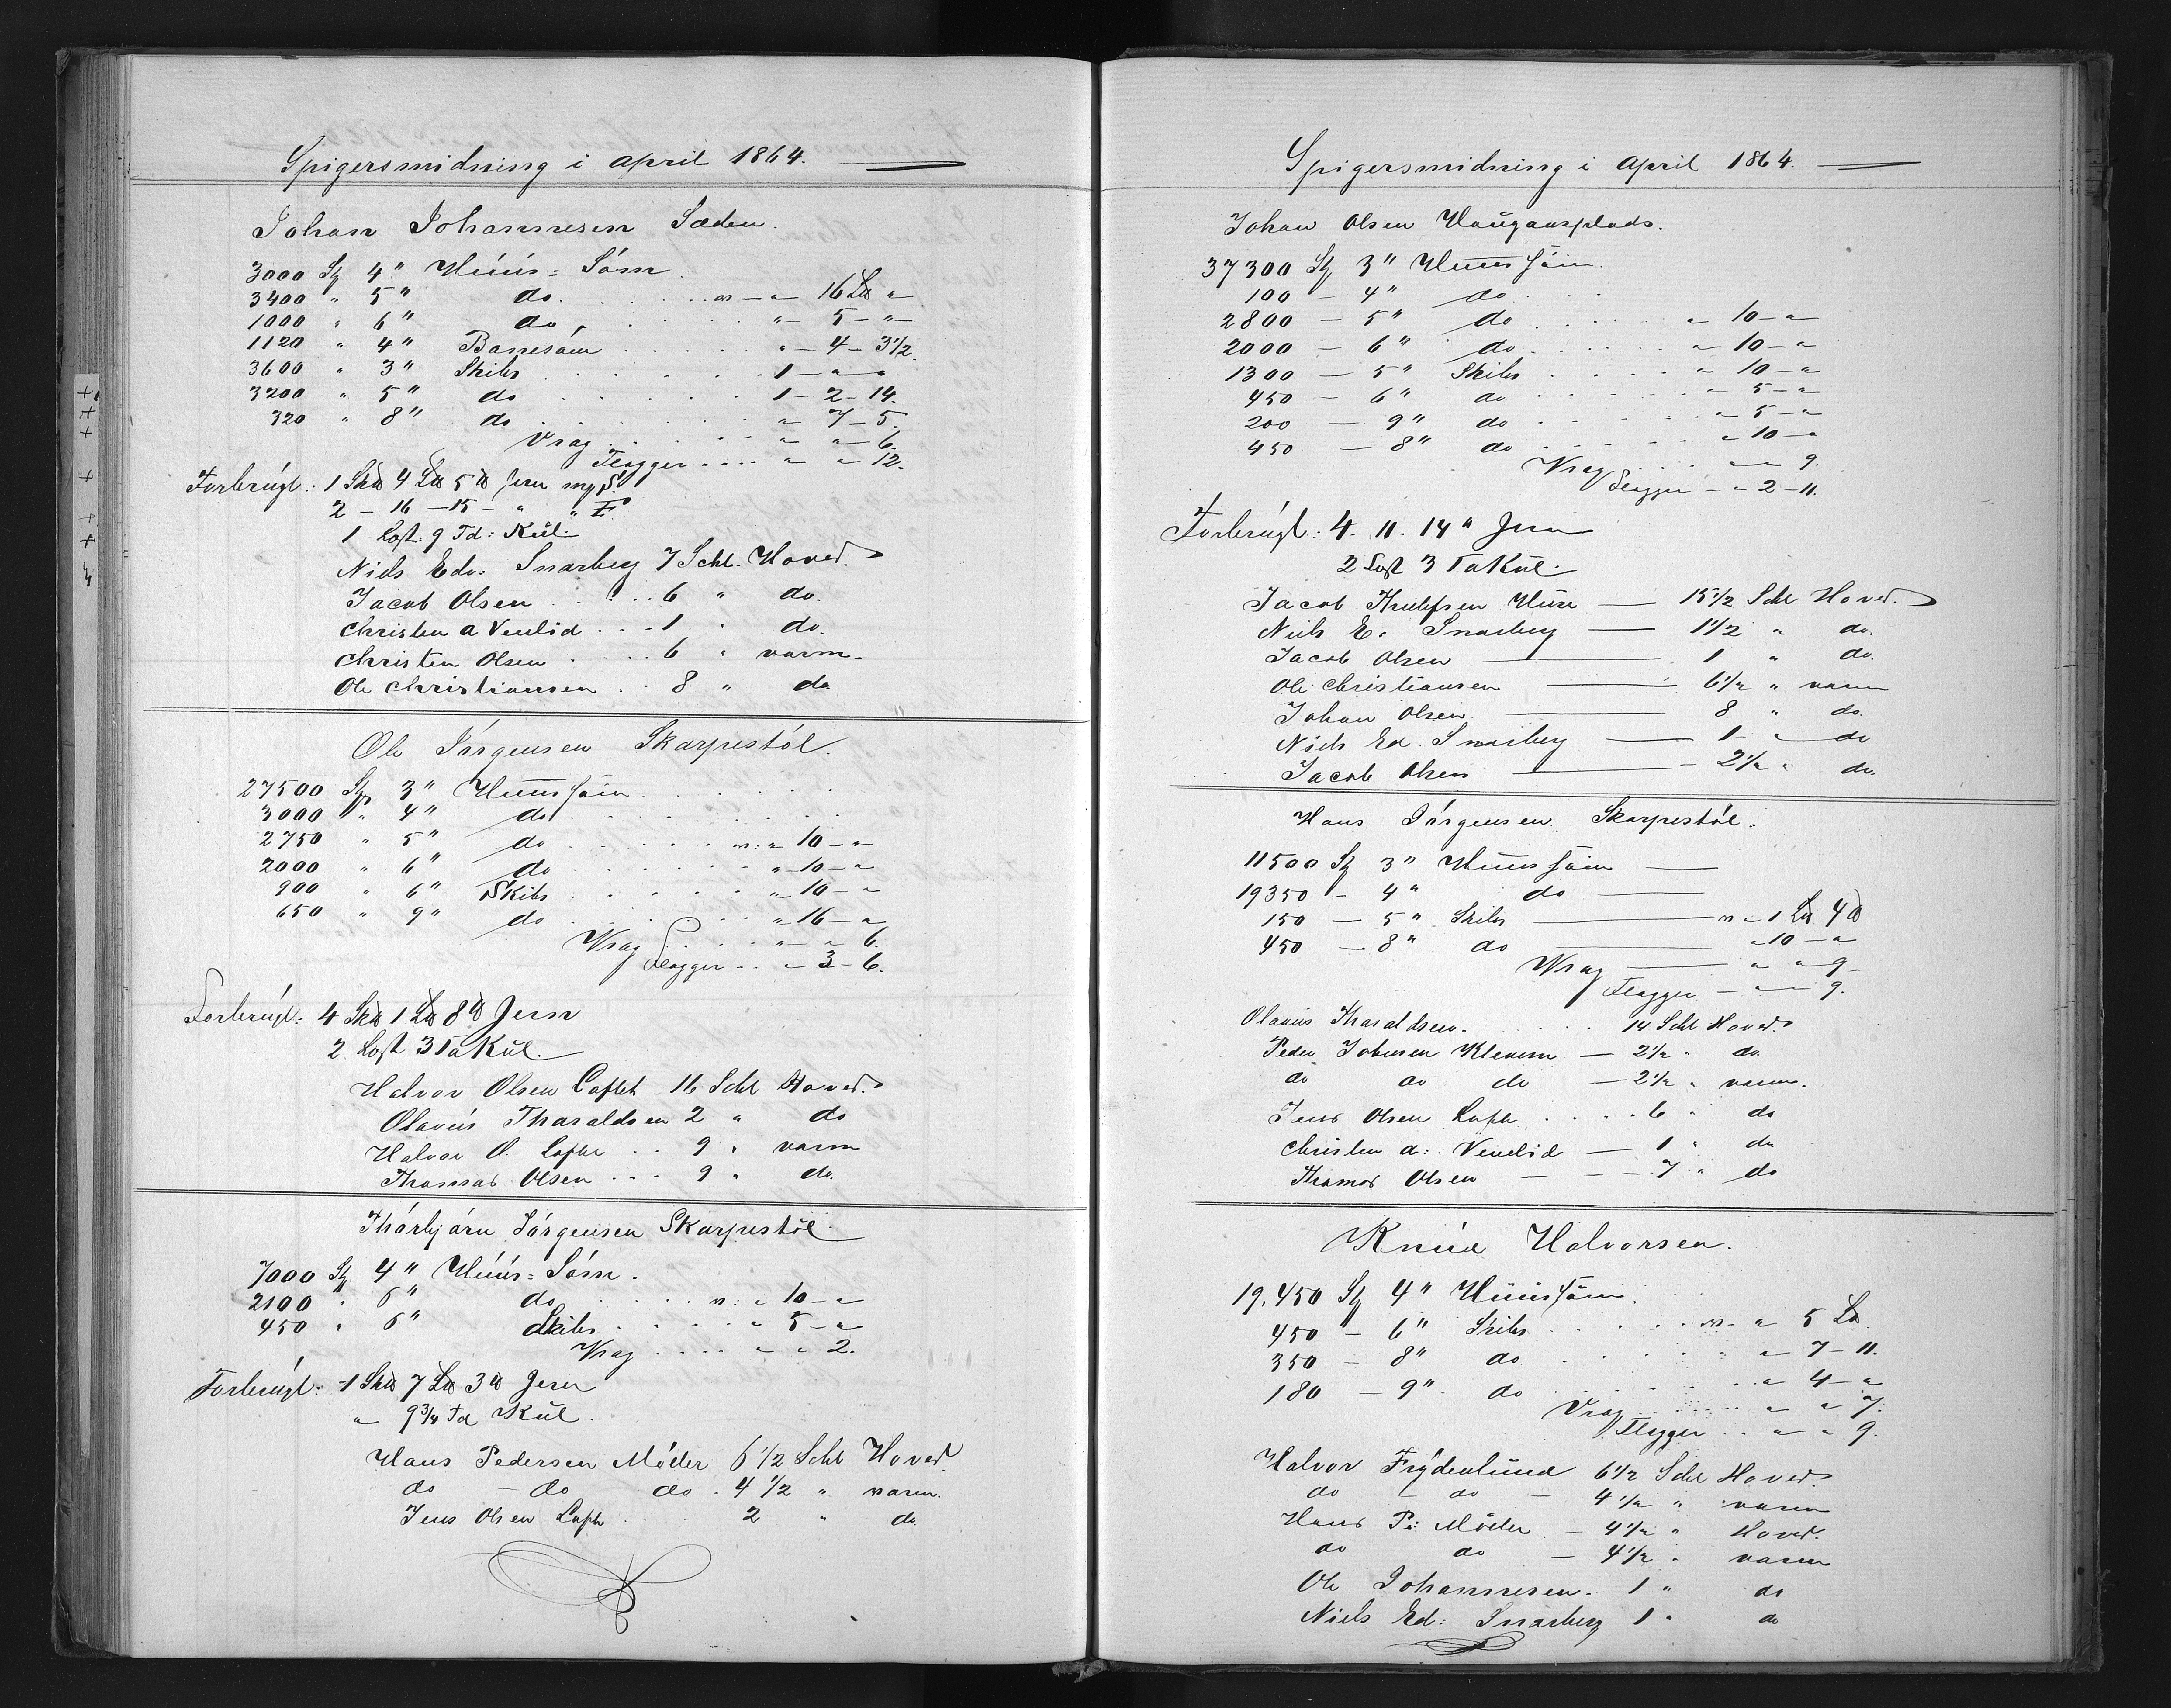 Spigersmidning i april 1864.
Johan Johannesen Sæden.
3000 Stz 4" Huus=Sóm.
3400 " 5" do. . . . . . w — " 16 L℔ "
1000 " 6" do . . . . . " — 5 — " —
1120 " 4" Baresóm . . . . " — 4 — 3 1/2.
3600 " 3" Skibs . . . . . 1 — " — "
3200 " 5" do . . . . . . 1 — 2 — 14.
320 " 8" do . . . . . . " 7 — 5.
Vrag . . . . . " — " 6.
Flogger . . . . " — " 12.
Forbrúgt: 1 Sk℔ 4 L℔ 5 ℔ Jern m/ S.
2 — 16 — 15 — " " F
1 Lost: 9 Td: Kúl.
Niels Edv. Snarberg 7 Schl. Hoved.
Jacob Olsen . . . . 6 " do.
Christen A Venlid . . . 1 " do.
Christen Olsen . . . . 6 " varm.
Ole Christiansen . . 8 " do.
Ole Jórgensen Skarpestól.
27500 Stz 3" Huussóm . . . . . .
3000 " 4" do . . . . . . .
2750 " 5" do . . . . . w: " 10 — " —
2000 " 6" do . . . . . . " — 10 — "
900 " 6" Skibs . . . . . . " — 10 — "
650 " 9" do . . . . . . " 16 — "
Vrag . . . . " — " 6.
Flogger . . " — 3 — 6.
Forbrúgt: 4 Sk℔ 1 L℔ 8 ℔ Jern
2 Lost 3 Td Kúl.
Halvor Olsen Loftet 16 Schl Hoved.
Olavús Tharaldsen 2 " do
Halvor O. Lofte . . 9 " varm
Thomas Olsen . . . 9 " do.
Thórbjórn Jórgensen Skarpestól.
7000 Stz 4" Huus=Sóm.
2100 " 6" do . . . . w: " 10 — "
450 " 6" Skibs . . . . . " 5 — "
Vrag . . . . " — " 2.
Forbrúgt: 1 Sk℔ 7 L℔ 3 ℔ Jern
" 9 3/4 Td Kúl.
Hans Pedersen Móder 6 1/2 Schl Hoved
do — do do . 4 1/2 " varm.
Jens Olsen Lofte . . . 2 " do.
Spigersmidning i April 1864.
Johan Olsen Haugansplads.
37300 Stz 3" Huussóm.
100 — 4" do . . .
2800 — 5" do . . . . . " 10 — "
2000 — 6" do . . . . . " 10 — "
1300 — 5" Skibs . . . . " 10 — "
450 — 6" do . . . . . " 5 — "
200 — 9" do . . . . . " 5 — "
450 — 8" do . . . . . " 10 — "
Vrag . . . " — " 9.
Flogger — " 2 — 11.
Forbrúgt: 4. 11. 14 " Jern
2 Lost 3 Td Kúl.
Jacob Thulesen Huse — 15 1/2 Schl Hoved.
Niels E. Snarberg — 1 1/2 " do.
Jacob Olsen — 1 " do.
Ole Christiansen — 6 1/2 " varm
Johan Olsen — 8 " do.
Niels Ed. Snarberg — 1 — " do
Jacob Olsen — 2 1/2 " do.
Hans Jórgensen Skarpestól.
11500 Stz 3" Huussóm —
19350 — 4" do —
150 — 5" Skibs — w " 1 L℔ 4 ℔
450 — 8" do — " 10 — "
Vrag — " " 9 —
Flogger — " — " 9.
Olavus Tharaldsen . . . . . 14 Schl Hoved.
Peder Johnsen Klevern — 2 1/2 " do.
do do do — 2 1/2 " varm.
Jens Olsen Lofte . . . . 6 " do
Christen A: Venelid — 1 " do
Thomas Olsen — — 7 " do
Knúd Halvorsen.
19,450 Stz 4" Huussóm.
450 — 6" Skibs . . . . w — " 5 L℔.
350 — 8" do . . . . . . " 7 — 11.
180 — 9" do . . . . . . " 4 — "
Vrag . . . . . " — " 7.
Flogger . . " — " 9.
Halvor Frydenlund 6 1/2 Schl Hoved.
do — do — 4 1/2 " varm
Hans P: Móder — 4 1/2 " Hoved.
do do — 4 1/2 " varm
Ole Johannesen. 1 " do
Niels Ed: Snarberg 1 " do